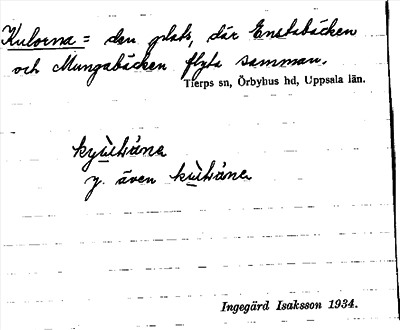 Kulorna = den plats, där Enstabäcken
och Mungabäcken flyta samman.
Tierps sn, Örbyhus hd, Uppsala län.
även
Ingegärd Isaksson 1934.